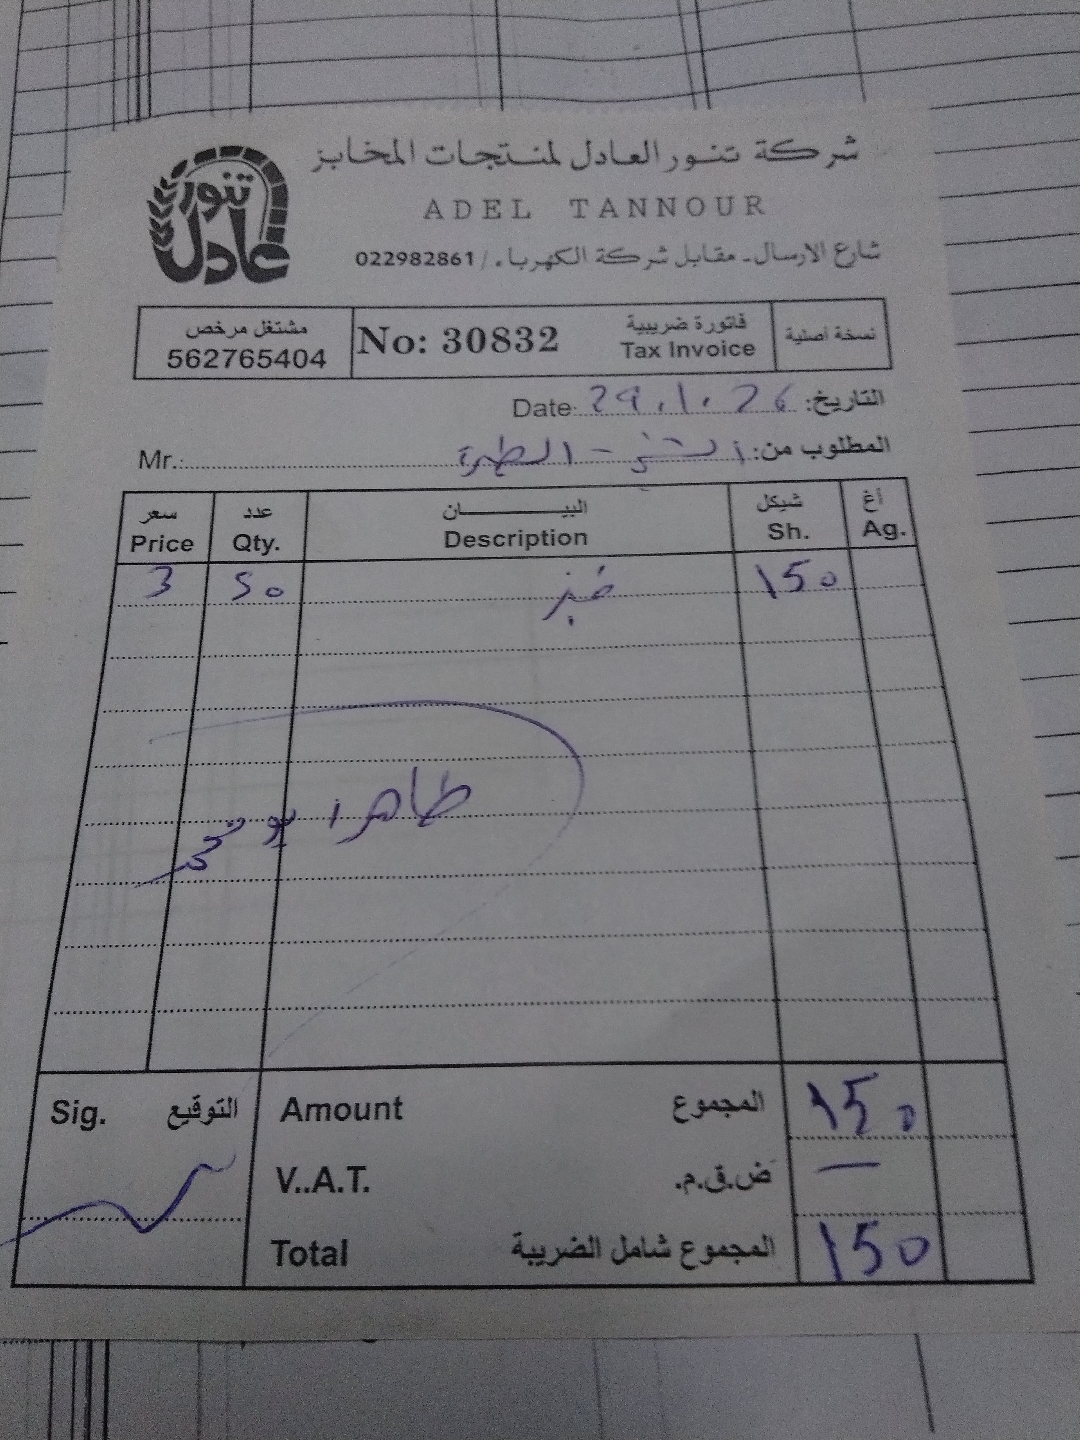 شركة تنور العادل لمنتجات المخابز
تنور عادل
ADEL TANNOUR
شارع الارسال - مقابل شركة الكهرباء / 022982861
مشتغل مرخص
562765404
No: 30832
فاتورة ضريبية
Tax Invoice
نسخة أصلية
التاريخ: Date: 29.1.26
المطلوب من: Mr.: - الطيرة
سعر Price عدد Qty. البيــــــان Description شيكل Sh. أغ Ag.
3 50 خبز 150
طاهر ابو
Sig. التوقيع
Amount المجموع 150
V..A.T. ض.ق.م. —
Total المجموع شامل الضريبة 150